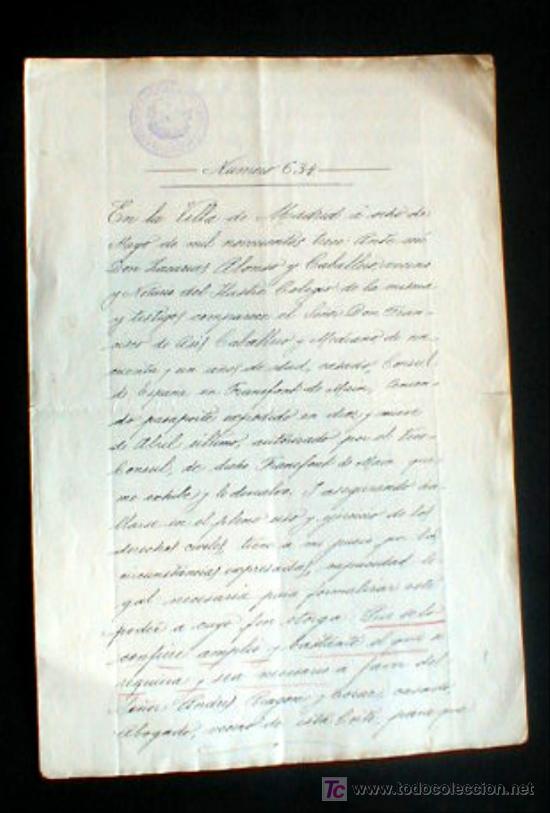 Numero 634
En la Villa de Madrid á ocho de
Mayo de mil novecientos trece Ante mi
Don Zacarias Alonso y Caballero, vecino
y Notario del Ilustre Colegio de la misma
y testigos comparece el Señor Don Fran-
cisco de Asis Caballero y Medrano de
cuenta y un años de edad, casado, Consul
de España en Francfort de Mein,
do pasaporte expedido en diez y nueve
de Abril último, autorizado por el Vice-
Consul, de dicho Francfort de Mein que
me exhibe y le devuelvo. Y asegurando ha-
llarse en el pleno uso y ejercicio de los
derechos civiles, tiene a mi juicio por las
circunstancias expresadas, capacidad le-
gal necesaria para formalizar este
poder a cuyo fin otorga: Que
confiere amplio y bastante el que se
requiera y sea necesario a favor del
Señor Andres Aragon y casado
Abogado, vecino de esta Corte, para que
TC www.todocoleccion.net